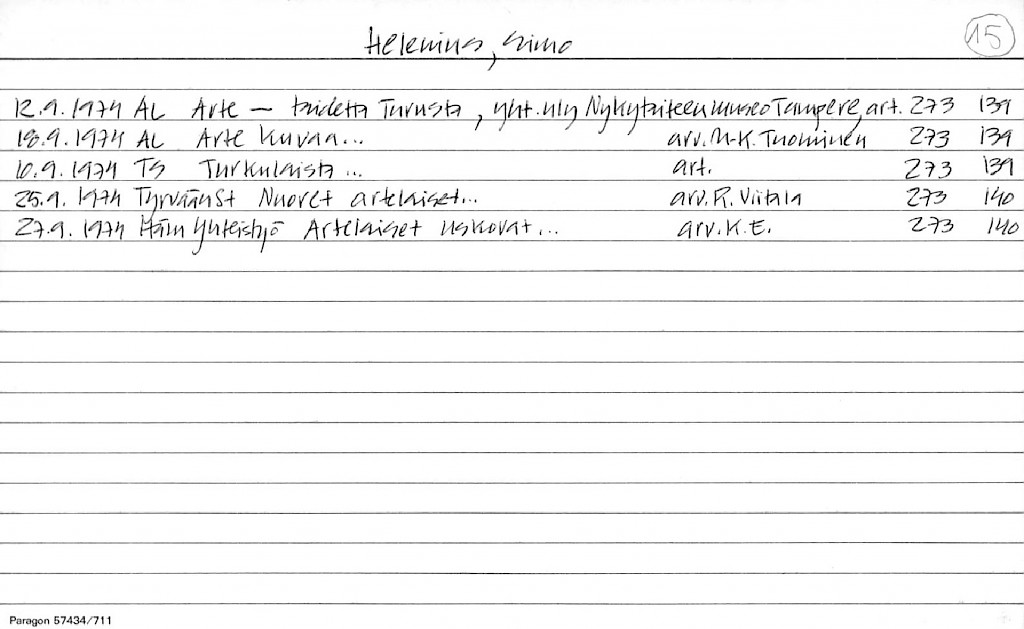 Helenius, Simo
15
12.9.1974 AL Arte – taidetta Turusta, yht.näy Nykytaiteen museo Tampere, art. 273 139
18.9.1974 AL Arte kuvaa... arv. M-K. Tuominen 273 139
10.9.1974 TS Turkulaista... art. 273 139
25.9.1974 TyrväänSt Nuoret artelaiset... arv. R. Viitala 273 140
27.9.1974 Häm Yhteistyö Artelaiset uskovat... arv. K.E. 273 140
Paragon 57434/711